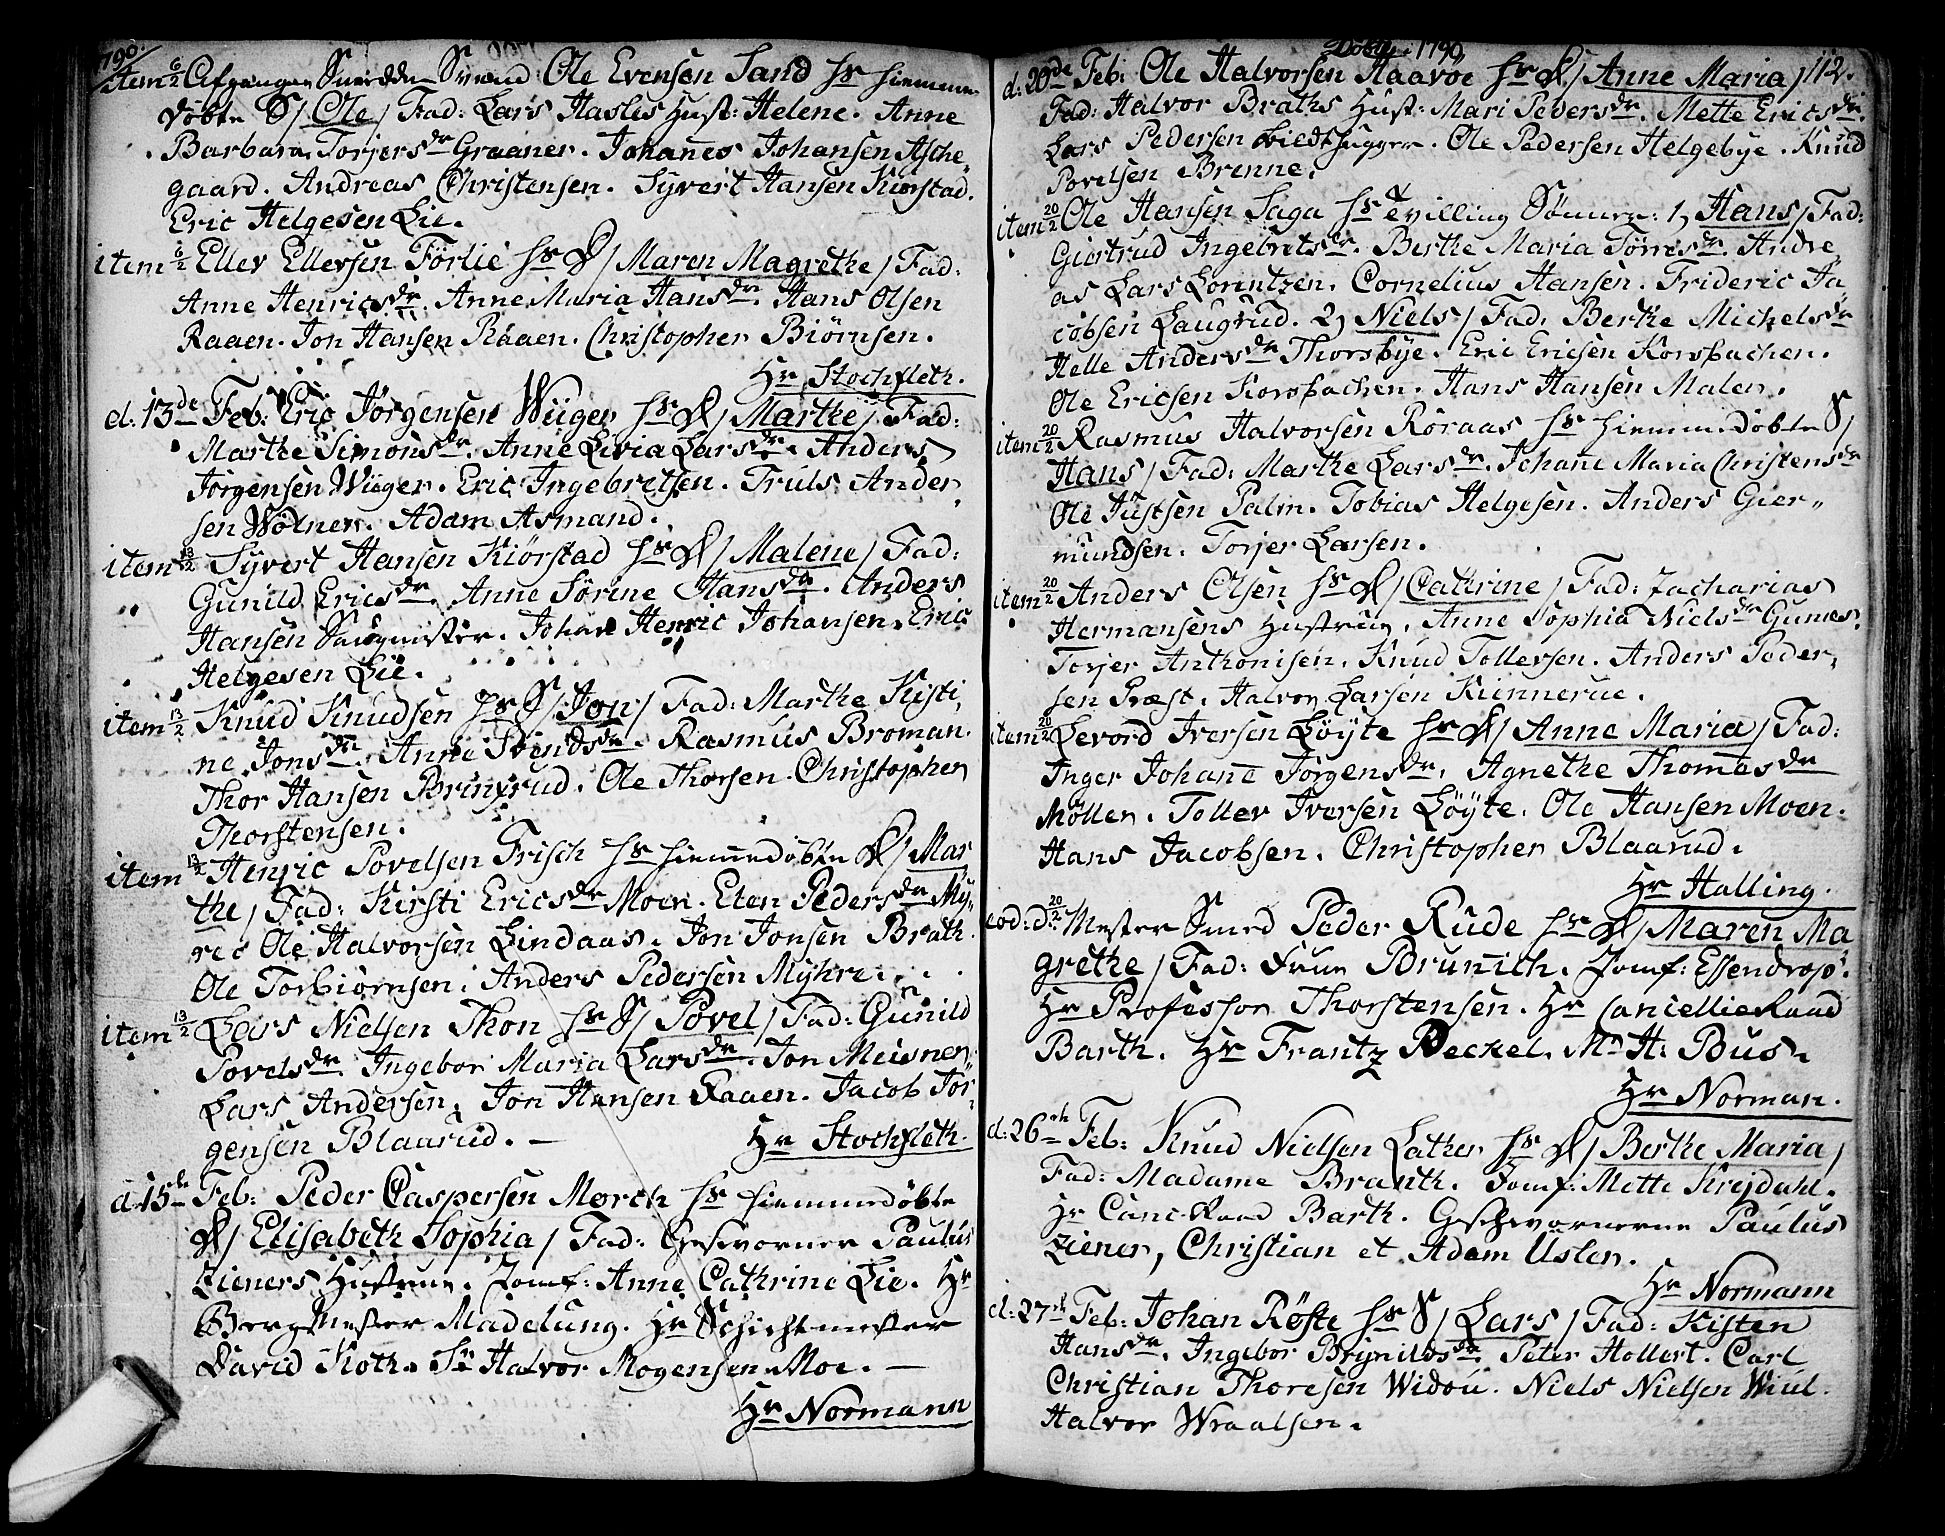 1790.
item 6/2 Afgangen Smedde Svend: Ole Evensen Sand hs hiemme
döbte S/ Ole/ Fad: Lars Hasles Hust: Helene. Anne
Barbara Torjersdr Graaner. Johanes Johansen Asche-
gaard. Andreas Christensen. Syvert Hansen Kiörstad.
Eric Helgesen Lie.
item 6/2 Eller Ellersen Förlie hs D/ Maren Magrethe/ Fad:
Anne Henricsdr. Anne Maria Hansdr. Hans Olsen
Raaen. Jon Hansen Raaen. Christopher Biörnsen.
Hr Stochfleth.
d. 13de Feb: Eric Jörgensen Wiiger hs D/ Marthe/ Fad:
Marthe Simonsdr. Anne Livia Larsdr. Anders
Jörgensen Wiiger. Eric Ingebretsen. Truls Ander-
sen Wölner. Adam Asmand.
item 13/2 Syvert Hansen Kiörstad hs D/ Malene/ Fad:
Gunild Ericsdr. Anne Sörine Hansdr. Anders
Hansen Saugmester. Johan Henric Johansen. Eric
Helgesen Lie.
item 13/2 Knud Knudsen hs S/ Jon/ Fad: Marthe Kisti-
ne Jonsdr. Anne Svendsdr. Rasmus Broman.
Thor Hansen Brinxrud. Ole Thorsen. Christopher
Thorstensen.
item 13/2 Henric Povelsen Frisch hs hiemmedöbte D/ Mar
the/ Fad: Kirsti Ericsdr Moen. Eten Pedersdr My-
re. Ole Halvorsen Lindaas. Jon Jonsen Brath.
Ole Torbiörnsen. Anders Pedersen Myhre.
item 13/2 Lars Nielsen Thon hs S/ Povel/ Fad: Gunild
Povelsdr. Ingebor Maria Larsdr. Jon Meisner.
Lars Andersen. Jon Hansen Raaen. Jacob Jör-
gensen Blaarud. —
Hr Stochfleth.
d. 15de Feb: Peder Caspersen Mörch hs hiemmedöbte
D/ Elisabeth Sophia/ Fad: Geschworner Paulus
Zieners Hustrue. Jomf: Anne Cathrine Lie. Hr
BergMester Madelung. Hr Schichtmester
David Koth. Sr Halvor Mogensen Moe. —
Hr Normann
Döbte 1790
112.
d. 20de Feb: Ole Halvorsen Haavoe hs D/ Anne Maria/
Fad: Halvor Braths Hust: Mari Pedersdr. Mette Ericsdr.
Lars Pedersen Viedhugger. Ole Pedersen Helgebye. Knud
Povelsen Brenne.
item 20/2 Ole Hansen Saga hs tvilling Sönner: 1, Hans/ Fad:
Giertrud Ingebretsdr. Berthe Maria Törresdr. Andre
as Lars Lorentzen. Cornelius Hansen. Frideric Ja-
cobsen Laugrud. 2, Niels/ Fad: Berthe Michelsdr
Helle Andersdr Thorsbye. Eric Ericsen Korsbachen.
Ole Ericsen Korsbachen. Hans Hansen Maler.
item 20/2 Rasmus Halvorsen Röraas hs hiemmedöbte S/
Hans/ Fad: Marthe Larsdr. Johane Maria Christensdr
Ole Justsen Palm. Tobias Helgesen. Anders Gier-
mundsen. Torjer Larsen.
item 20/2 Anders Olsen hs D/ Cathrine/ Fad: Zacharias
Hermansens Hustrue. Anne Sophia Nielsdr Gumes.
Torjer Anthonisen. Knud Tollefsen. Anders Peder-
sen Præst. Halvor Larsen Kiinnerue.
item 20/2 Levord Iversen Löyte hs D/ Anne Maria/ Fad:
Inger Johane Jörgensdr. Agnethe Thomesdr
Möller. Tollev Iversen Löyte. Ole Hansen Moen.
Hans Jacobsen. Christopher Blaarud.
Hr Halling.
eod: d: 20/2 Mester Smed Peder Rude hs D/ Maren Ma
grethe/ Fad: Frue Brunich. Jomf: Essendrop.
Hr Professor Thorstensen. Hr CancellieRaad
Barth. Hr Frantz Beckel. Mr H: Bus.
Hr Norman.
d. 26th Feb: Knud Nielsen Lather hs D/ Berthe Maria/
Fad: Madame Branth. Jomf: Mette Krejdahl.
Hr Canc-Raad Barth. Geschwornerne Paulus
Ziener, Christian et Adam Usler.
Hr Normann
d: 27th Feb: Johan Röste hs S/ Lars/ Fad: Kisten
Hansdr. Ingebor Brynildsdr. Peter Hollert. Carl
Christian Thoresen Widou. Niels Nielsen Wiul.
Halvor Wraalsen.